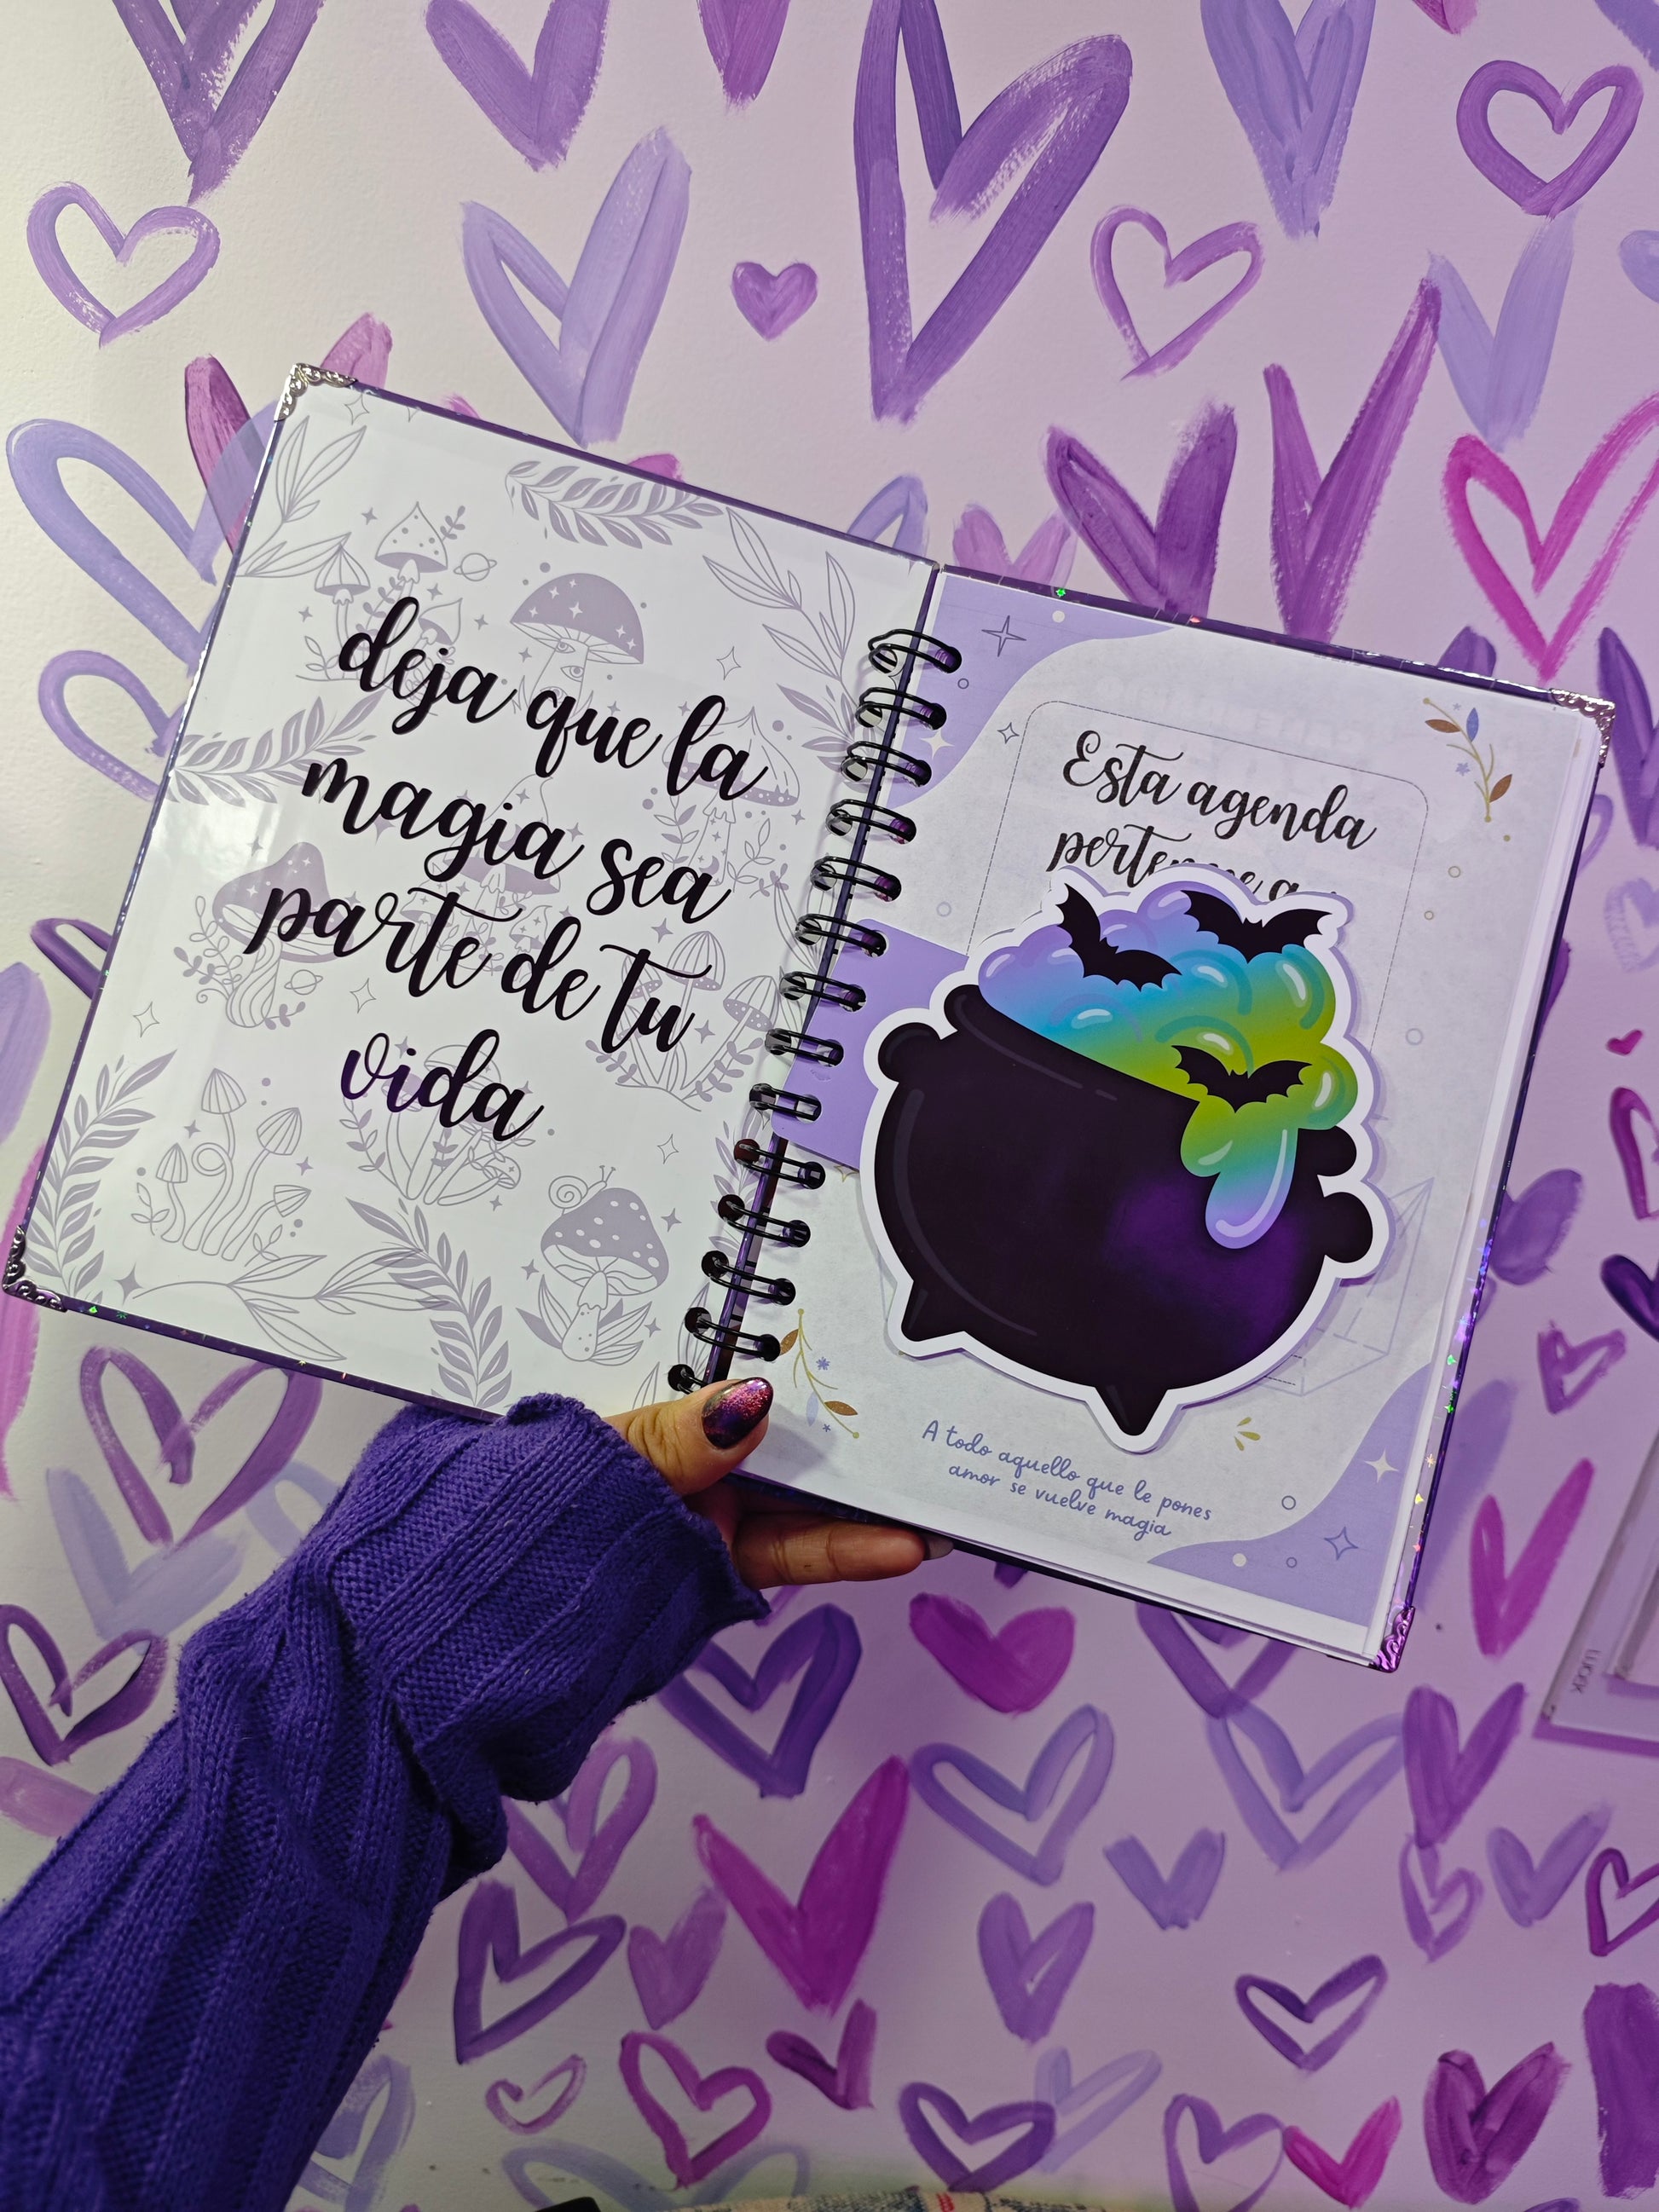 deja que la
magia sea
parte de tu
vida
Esta agenda
A todo aquello que le pones
amor se vuelve magia